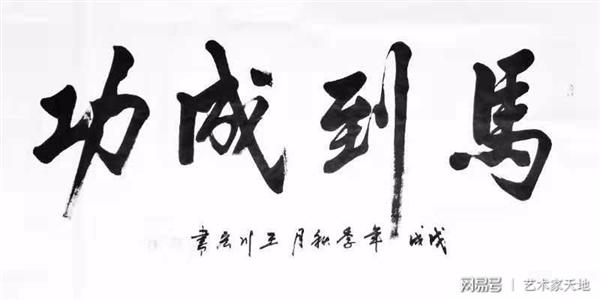 馬到成功
戊戌年季秋月王川吉書
网易号 | 艺术家天地